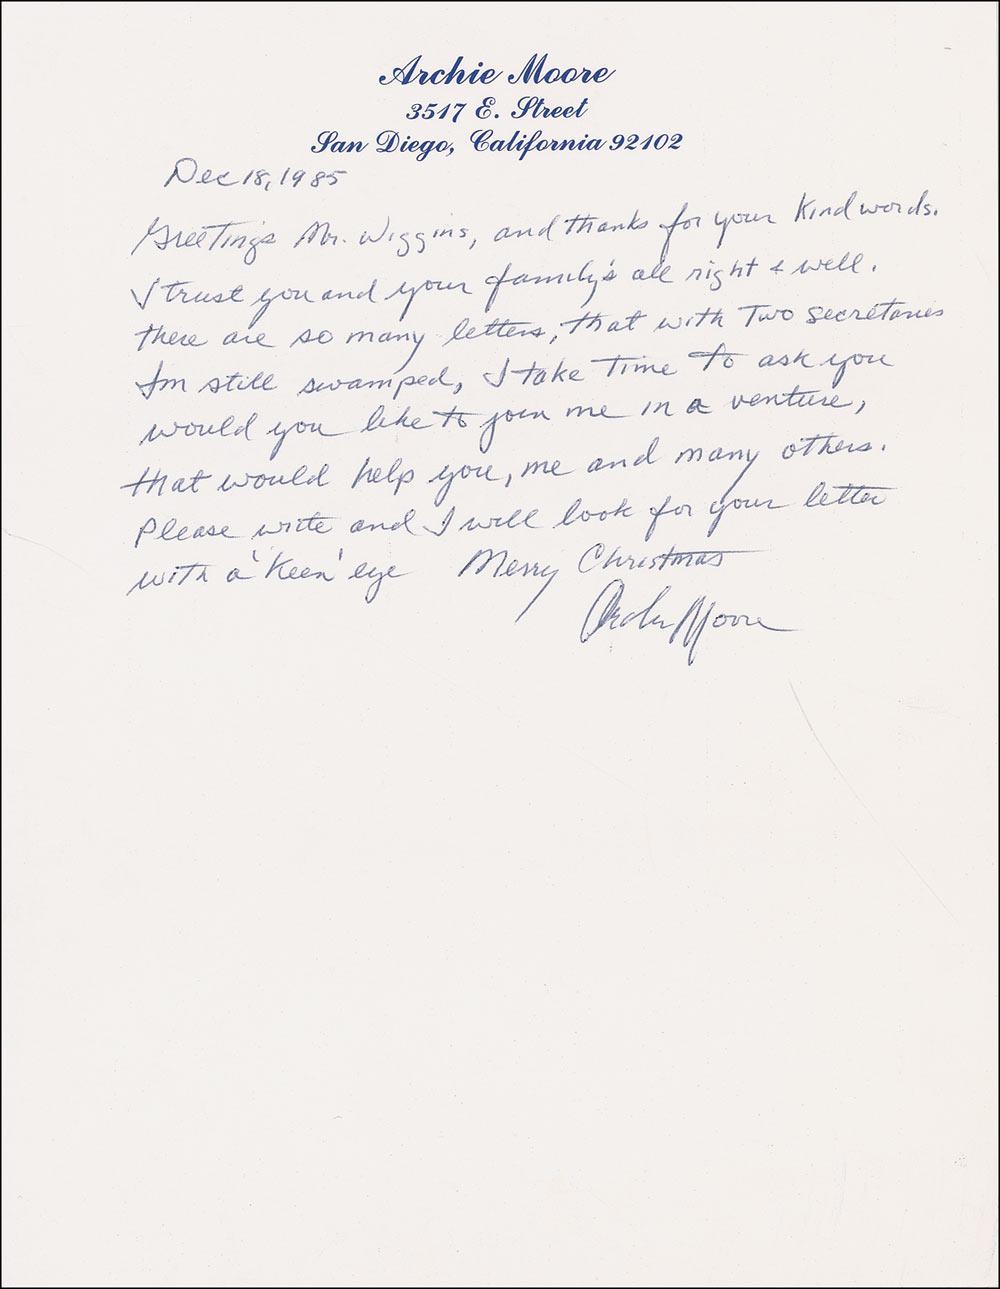 Archie Moore
3517 E. Street
San Diego, California 92102
Dec 18, 1985
Greetings Mr. Wiggins, and thanks for your kind words.
I trust you and your family's all right & well.
there are so many letters, that with two secretaries
Im still swamped, I take time to ask you
would you like to join me in a venture,
that would help you, me and many others.
Please write and I will look for your letter
with a 'keen' eye Merry Christmas
Archie Moore